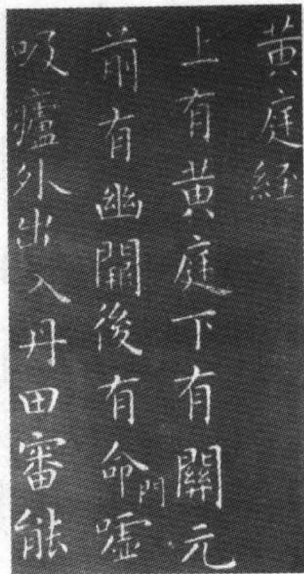 黄庭経
上有黄庭下有關元
前有幽闕後有命門噓
吸廬外出入丹田審能